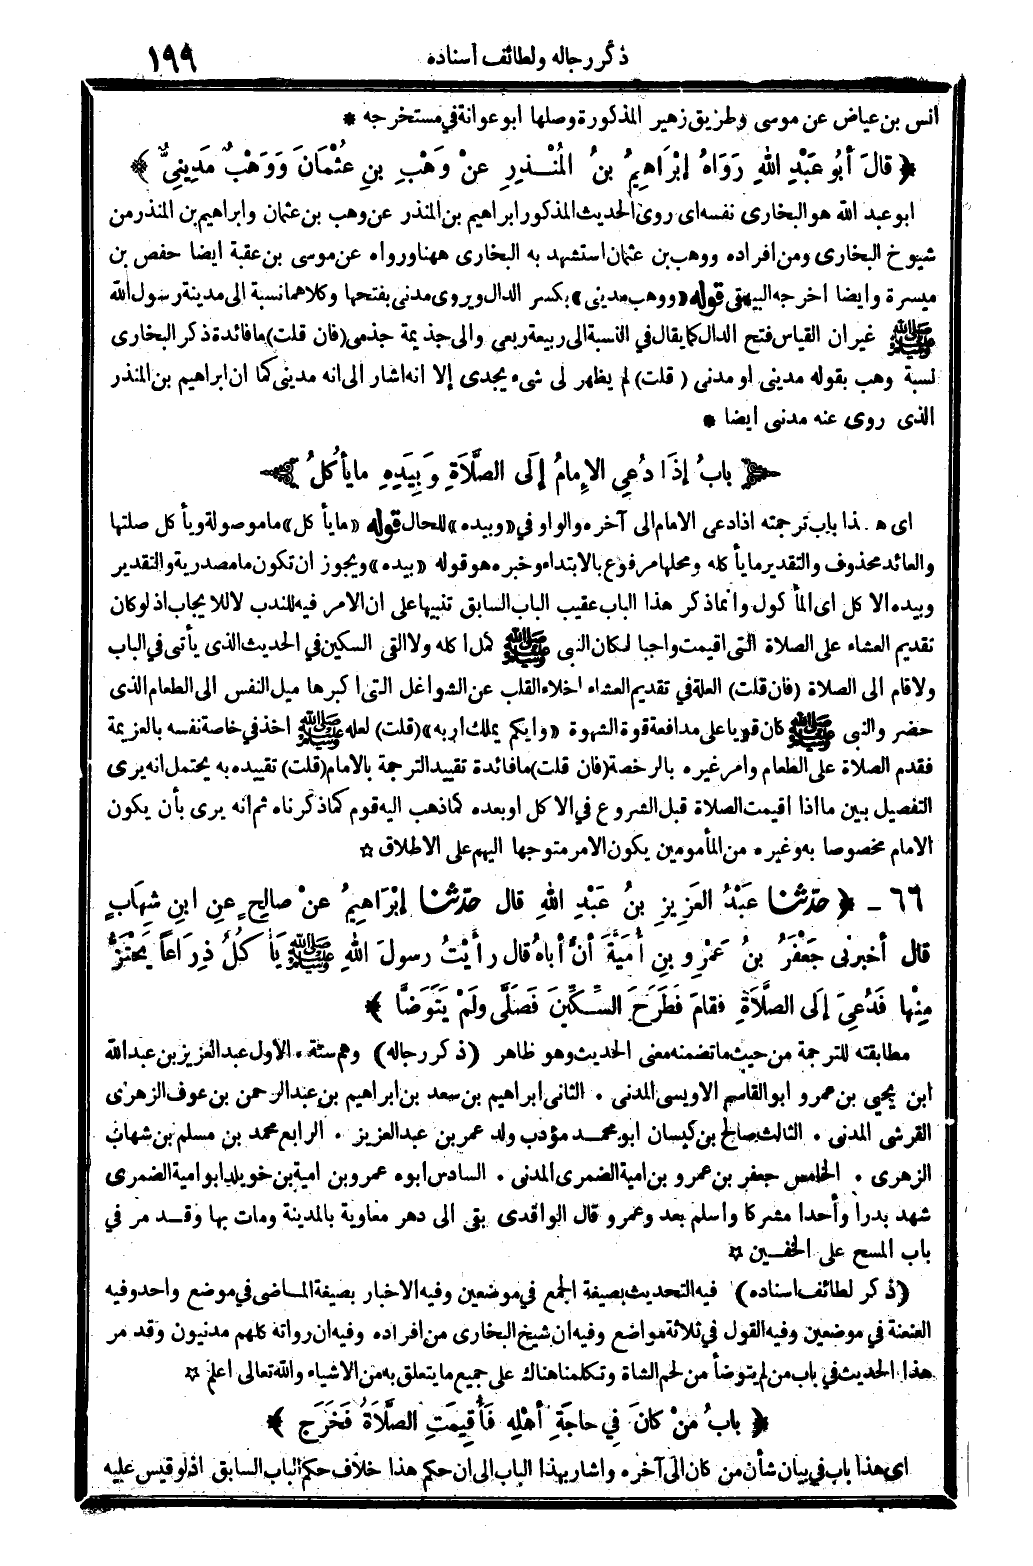 ذكر رجاله ولطائف أسناده ١٩٩
انس بن عياض عن موسى وطريق زهير المذكورة وصلها ابو عوانة في مستخرجه *
﴿ قَالَ أَبُو عَبْدِ اللهِ رَوَاهُ إبْرَاهِيمُ بنُ المُنْذِرِ عنْ وَهْبِ بنِ عُثْمَانَ وَوَهْبٌ مَدِينِيٌّ ﴾
ابو عبد الله هو البخارى نفسه اى روى الحديث المذكور ابراهيم بن المنذر عن وهب بن عثمان وابراهيم بن المنذر من
شيوخ البخارى ومن افراده ووهب بن عثمان استشهد به البخارى ههنا ورواه عن موسى بن عقبة ايضا حفص بن
ميسرة وايضا اخرجه البيهقى قوله «ووهب مدينى» بكسر الدال ويروى مدنى بفتحها وكلاهما نسبة الى مدينة رسول الله
ﷺ غير ان القياس فتح الدال كما يقال في النسبة الى ربيعة ربعى والى جذيمة جذمى (فان قلت) ما فائدة ذكر البخارى
نسبة وهب بقوله مدينى او مدنى ( قلت) لم يظهر لى شىء يجدى إلا انه اشار الى انه مدينى كما ان ابراهيم بن المنذر
الذى روى عنه مدنى ايضا *
﴿ بابُ إذَا دُعِيَ الإِمامُ إلَى الصَّلَاةِ وَبِيَدِهِ ما يأكُلُ ﴾
اى هذا باب ترجمته اذا دعى الامام الى آخره والواو في «وبيده» للحال قوله «ما يأكل» ما موصولة ويأكل صلتها
والعائد محذوف والتقدير ما يأكله ومحلها مرفوع بالابتداء وخبره هو قوله «بيده» ويجوز ان تكون ما مصدرية والتقدير
وبيده الاكل اى المأكول وانما ذكر هذا الباب عقيب الباب السابق تنبيها على ان الامر فيه للندب لا للايجاب اذ لو كان
تقديم العشاء على الصلاة التى اقيمت واجبا لكان النبى ﷺ كمل اكله ولا القى السكين في الحديث الذى يأتى في الباب
ولا قام الى الصلاة (فان قلت) العلة في تقديم العشاء اخلاء القلب عن الشواغل التى اكبرها ميل النفس الى الطعام الذى
حضر والنبى ﷺ كان قويا على مدافعة قوة الشهوة «وايكم يملك اربه» (قلت) لعله ﷺ اخذ في خاصة نفسه بالعزيمة
فقدم الصلاة على الطعام وامر غيره بالرخصة (فان قلت) ما فائدة تقييد الترجمة بالامام (قلت) تقييده به يحتمل انه يرى
التفصيل بين ما اذا اقيمت الصلاة قبل الشروع في الاكل او بعده كما ذهب اليه قوم كما ذكرناه ثم انه يرى بأن يكون
الامام مخصوصا به وغيره من المأمومين يكون الامر متوجها اليهم على الاطلاق ☆
٦٦ ـ ﴿ حَدَّثَنَا عَبْدُ العَزِيزِ بنُ عَبْدِ اللهِ قال حَدَّثَنَا إبْرَاهِيمُ عنْ صالِحٍ عنِ ابنِ شهَابٍ
قال أخبرنى جَعْفَرُ بنُ عَمْرِو بنِ أُمَيَّةَ أنَّ أباهُ قال رأيْتُ رسولَ اللهِ ﷺ يَأْكُلُ ذِرَاعاً يَحْتَزُّ
مِنْها فَدُعِيَ إلَى الصَّلَاةِ فقامَ فَطَرَحَ السِّكِّينَ فَصَلَّى ولَمْ يَتَوَضَّأ ﴾
مطابقته للترجمة من حيث ما تضمنه معنى الحديث وهو ظاهر (ذكر رجاله) وهم ستة . الاول عبد العزيز بن عبد الله
ابن يحيى بن عمرو ابو القاسم الاويسى المدنى . الثانى ابراهيم بن سعد بن ابراهيم بن عبد الرحمن بن عوف الزهرى
القرشى المدنى . الثالث صالح بن كيسان ابو محمد مؤدب ولد عمر بن عبد العزيز . الرابع محمد بن مسلم بن شهاب
الزهرى . الخامس جعفر بن عمرو بن امية الضمرى المدنى . السادس ابوه عمرو بن امية بن خويلد ابو امية الضمرى
شهد بدرا وأحدا مشركا وأسلم بعد وعمرو قال الواقدى بقى الى دهر معاوية بالمدينة ومات بها وقد مر في
باب المسح على الخفين ☆
(ذكر لطائف اسناده) فيه التحديث بصيغة الجمع في موضعين وفيه الاخبار بصيغة الماضى في موضع واحد وفيه
العنعنة في موضعين وفيه القول في ثلاثة مواضع وفيه ان شيخ البخارى من افراده وفيه ان رواته كلهم مدنيون وقد مر
هذا الحديث في باب من لم يتوضأ من لحم الشاة وتكلمنا هناك على جميع ما يتعلق به من الاشياء والله تعالى اعلم ☆
﴿ بابُ مَنْ كانَ فِي حاجَةِ أهْلِهِ فَأُقِيمَتِ الصَّلَاةُ فَخَرَجَ ﴾
اى هذا باب في بيان شأن من كان الى آخره واشار بهذا الباب الى ان حكم هذا خلاف حكم الباب السابق اذ لو قيس عليه